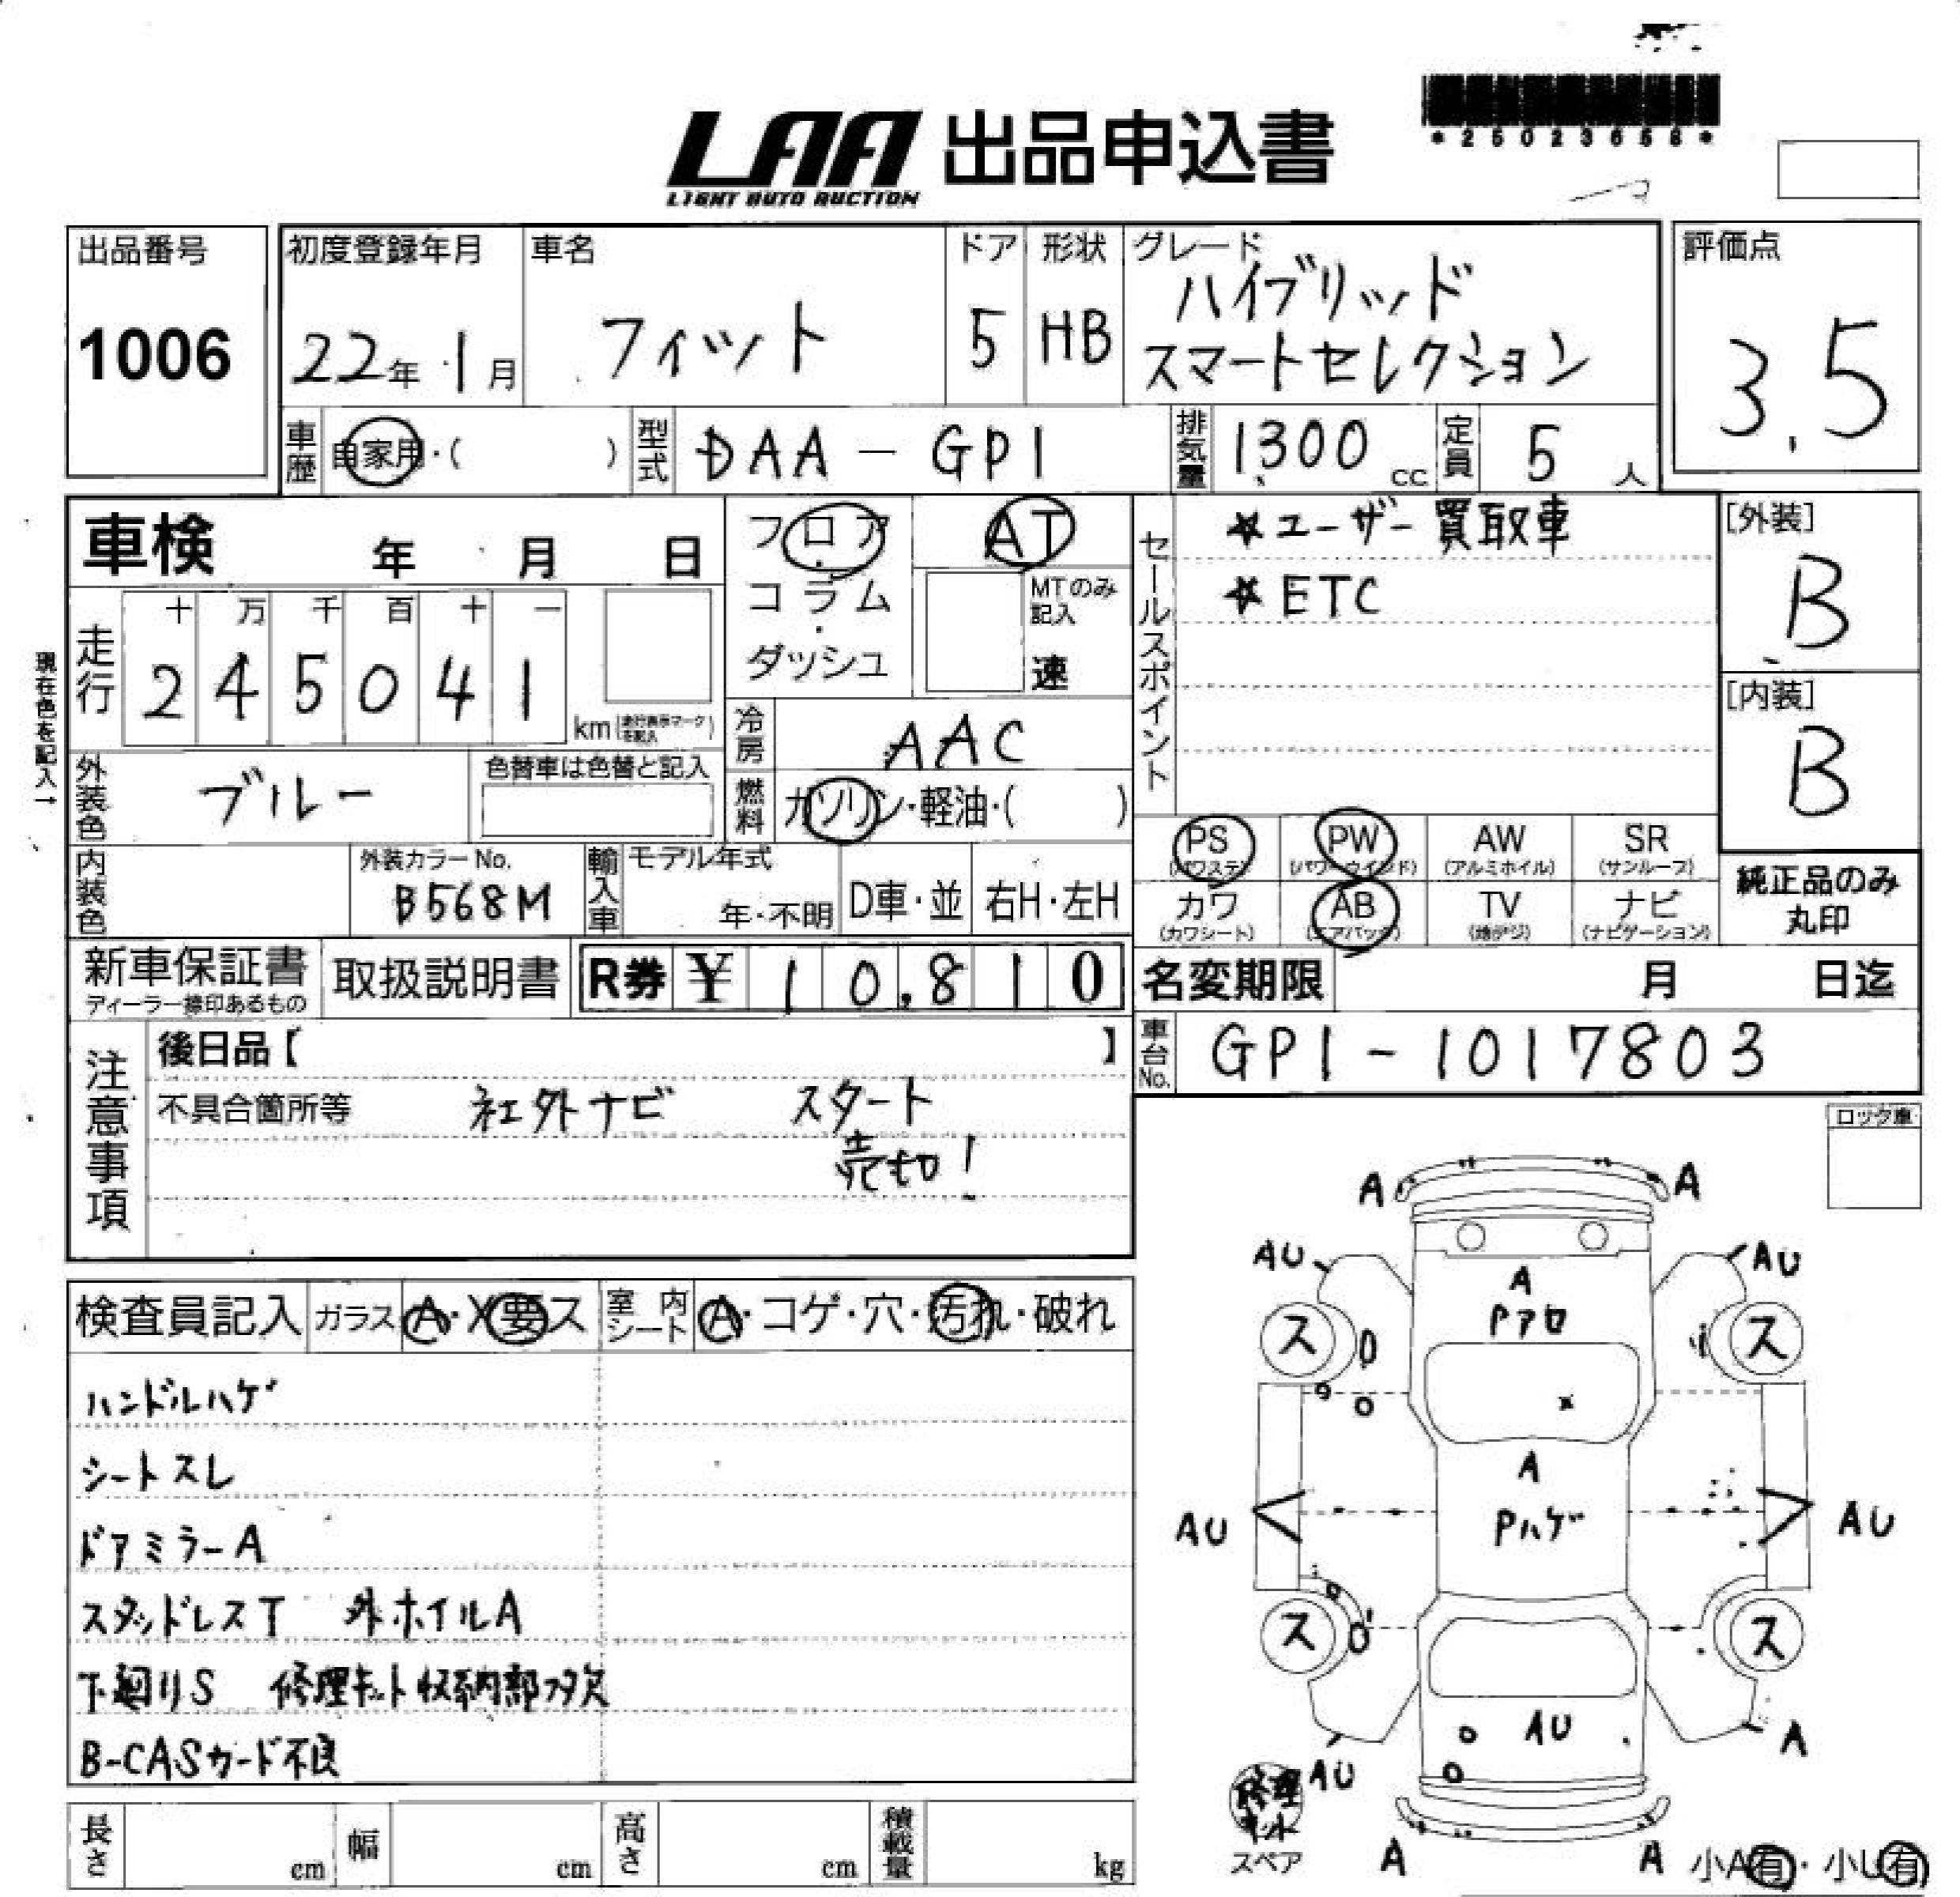 LAA 出品申込書
LIGHT AUTO AUCTION
*25023658*
出品番号
1006
初度登録年月
22年 1月
車名
フィット
ドア
5
形状
HB
グレード
ハイブリッド
スマートセレクション
評価点
3.5
車歴
自家用・( )
型式
DAA - GP1
排気量
1,300 cc
定員
5 人
車検 年 月 日
フロア
・
コラム
・
ダッシュ
AT
MTのみ
記入
速
走行
十 万 千 百 十 一
2 4 5 0 4 1
km (走行表示マークを記入)
現在色を記入→
外装色
ブルー
色替車は色替と記入
冷房
AAC
燃料
ガソリン・軽油・( )
内装色
外装カラーNo.
B568M
輸入車
モデル年式
年・不明
D車・並
右H・左H
セールスポイント
☆ユーザー買取車
☆ETC
[外装]
B
[内装]
B
PS
(パワステ)
PW
(パワーウインド)
AW
(アルミホイル)
SR
(サンルーフ)
カワ
(カワシート)
AB
(エアバック)
TV
(地デジ)
ナビ
(ナビゲーション)
純正品のみ
丸印
新車保証書
ディーラー捺印あるもの
取扱説明書
R券 ¥ 10,810
名変期限 月 日迄
車台No.
GP1-1017803
注意事項
後日品【 】
不具合箇所等
社外ナビ スタート
売切!
ロック車
検査員記入
ガラス A・X要ス
室内シート A・コゲ・穴・汚れ・破れ
ハンドルハゲ
シートスレ
ドアミラーA
スタッドレスT 外ホイルA
下廻りS 修理キット収納部フタ欠
B-CASカード不良
A A
AU AU
A
Pアセ
ス ス
A
Pハゲ
AU AU
ス ス
AU
AU A
修理
キット
スペア
A A
小A有・小U有
長さ cm
幅 cm
高さ cm
積載量 kg